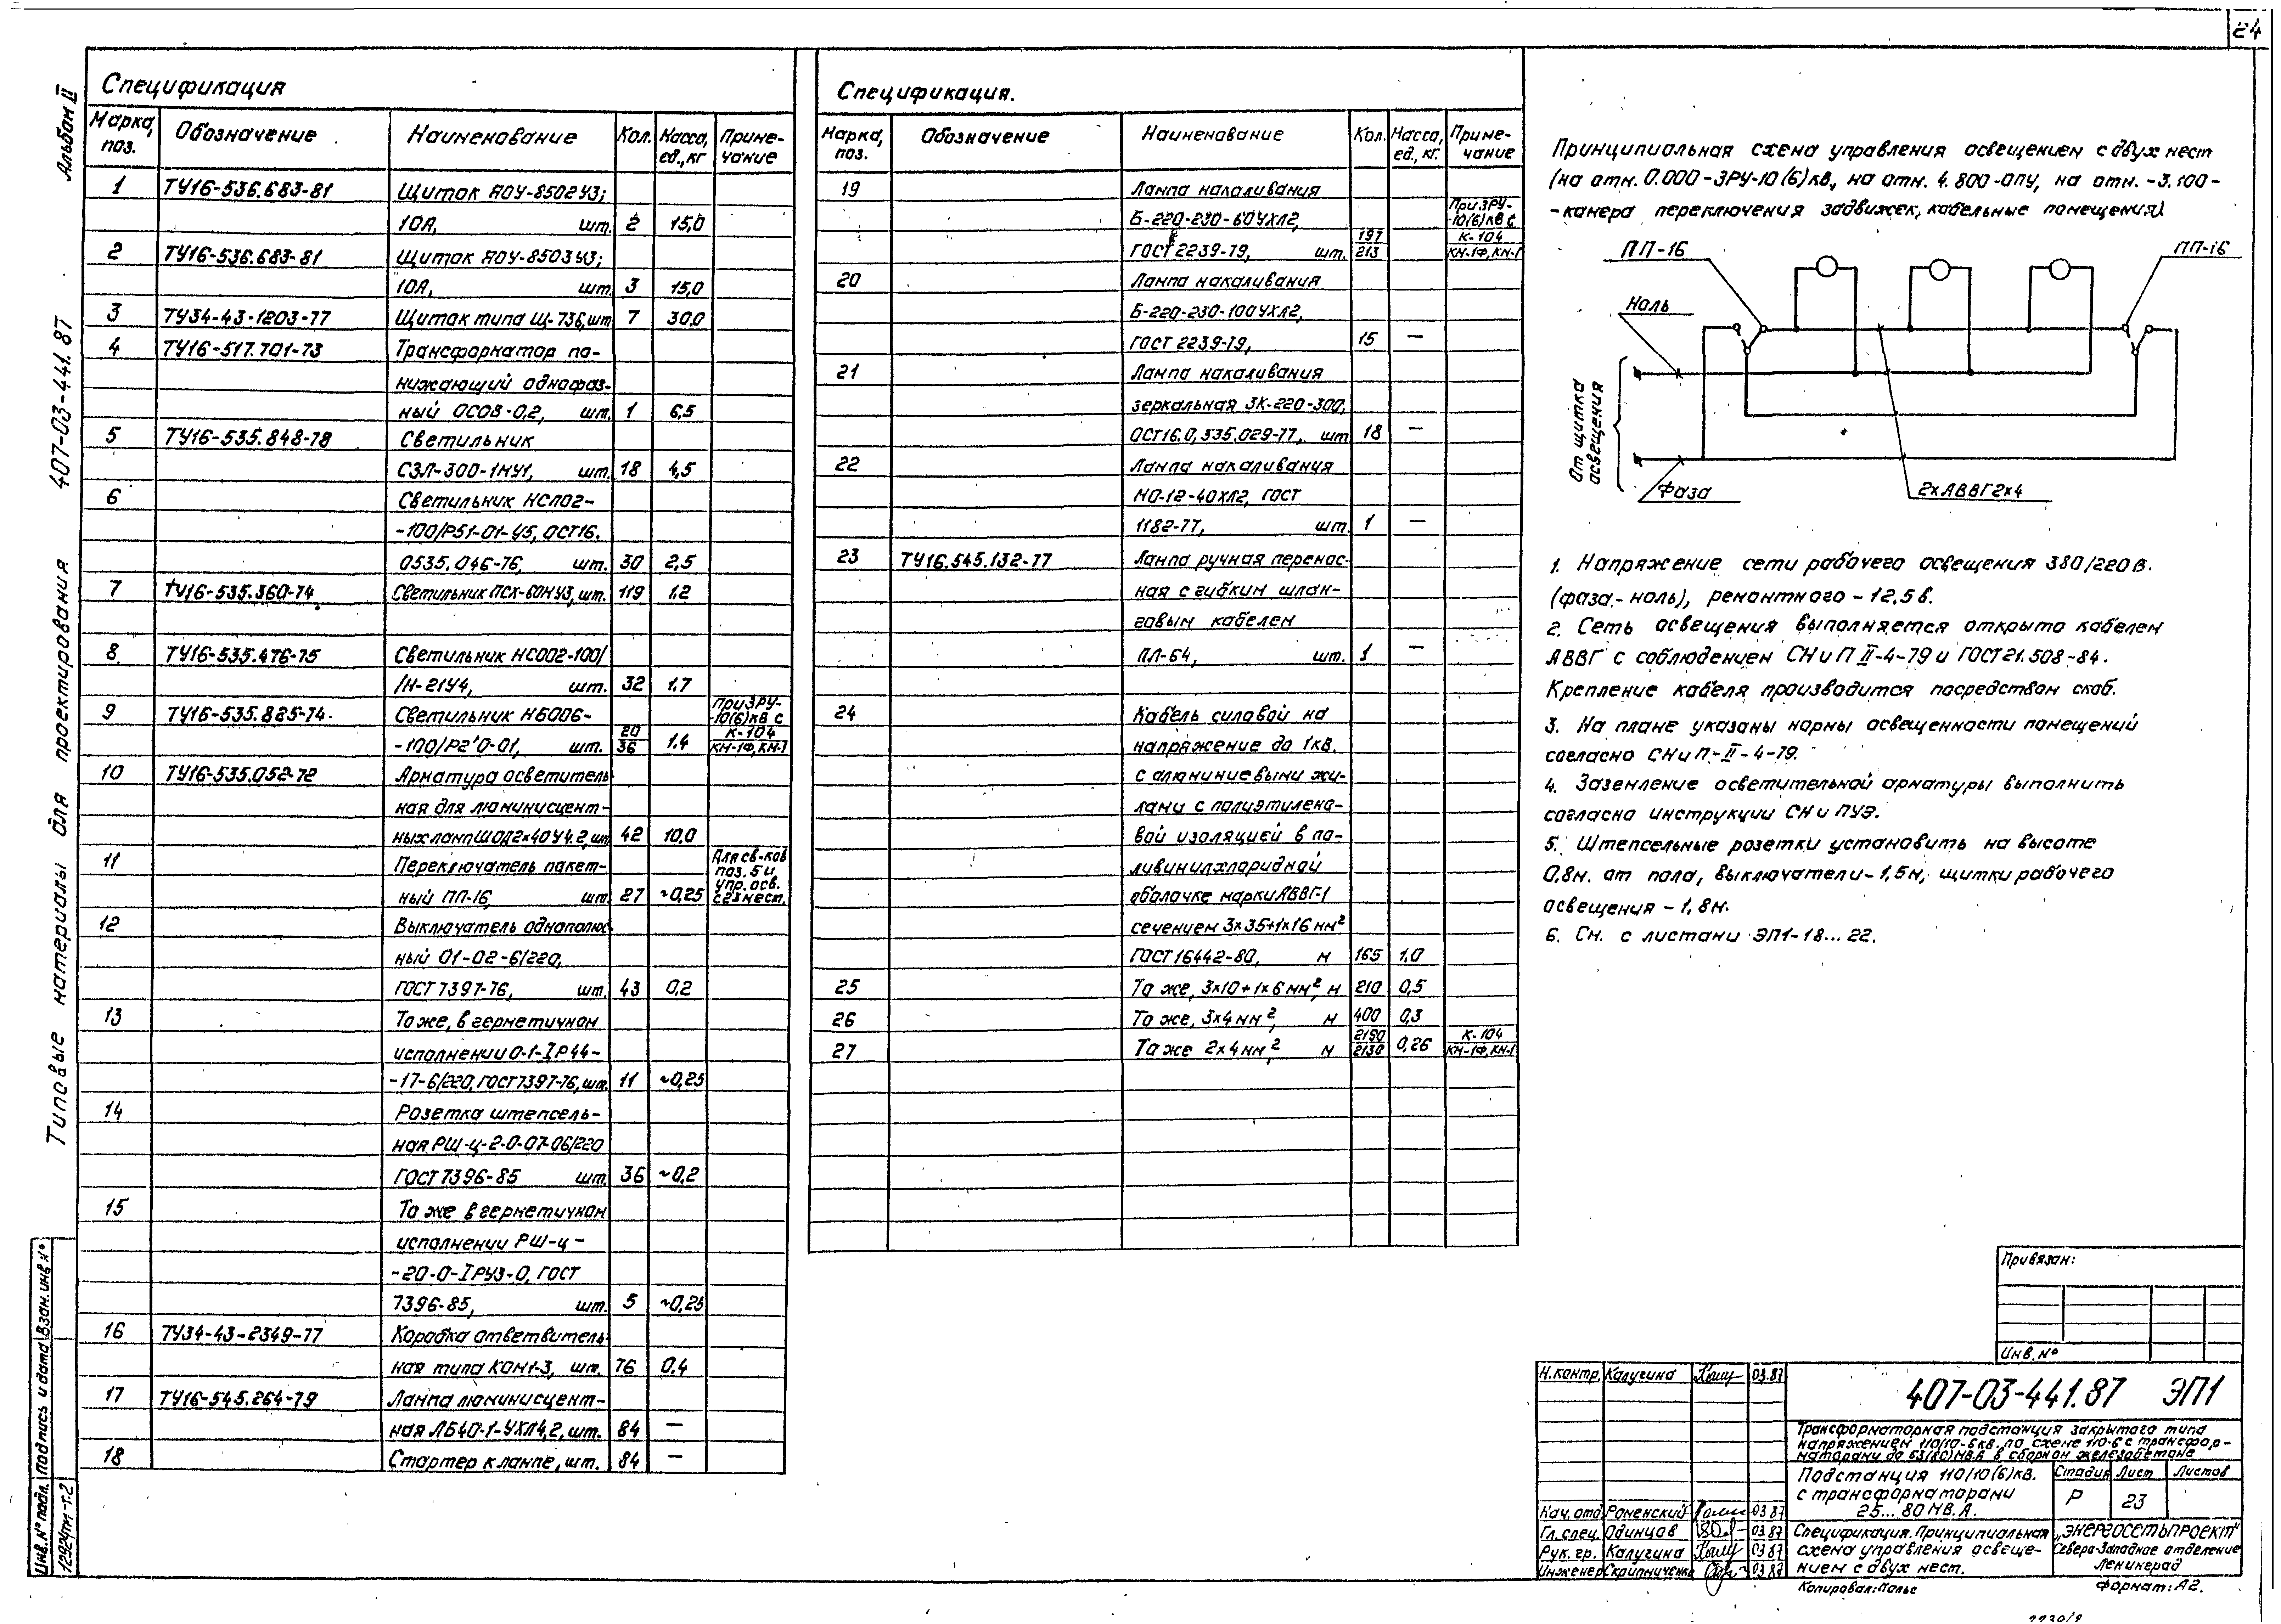 24
Альбом II
407-03-441.87
Типовые материалы для проектирования
Инв.№ подл. Подпись и дата Взам.инв.№
12924тм-т.2
Спецификация
Марка, поз. Обозначение Наименование Кол. Масса, ед., кг Примечание
1 ТУ16-536.683-81 Щиток ЯОУ-8502У3;
10А, шт. 2 15,0
2 ТУ16-536.683-81 Щиток ЯОУ-8503У3;
10А, шт. 3 15,0
3 ТУ34-43-1203-77 Щиток типа Щ-736, шт 7 30,0
4 ТУ16-517.701-73 Трансформатор по-
нижающий однофаз-
ный ОСОВ-0,2, шт. 1 6,5
5 ТУ16-535.848-78 Светильник
СЗЛ-300-1МУ1, шт. 18 4,5
6 Светильник НСП02-
-100/Р51-01-У5, ОСТ16.
0535.046-76, шт. 30 2,5
7 ТУ16-535.360-74 Светильник ПСХ-60МУ3, шт. 119 1.2
8 ТУ16-535.476-75 Светильник НСО02-100/
/Н-21У4, шт. 32 1.7
9 ТУ16-535.825-74 Светильник НБО06-
-100/Р2'0-01, шт. 20/36 1.4 При ЗРУ-10(6)кВ с К-104 КМ-1Ф, КМ-1
10 ТУ16-535.052-72 Арматура осветитель
ная для люминисцент-
ных ламп ШОД2х40У4.2, шт 42 10.0
11 Переключатель пакет-
ный ПП-16, шт 27 ~0,25 Для св-ков поз. 5 и упр. осв. с 2х мест.
12 Выключатель однополюс
ный 01-02-6/220,
ГОСТ 7397-76, шт. 43 0,2
13 То же, в герметичном
исполнении 0-1-IP44-
-17-6/220, ГОСТ 7397-76, шт. 11 ~0,25
14 Розетка штепсель-
ная РШ-ц-2-0-07-06/220
ГОСТ 7396-85 шт. 36 ~0,2
15 То же в герметичном
исполнении РШ-ц-
-20-0-IРУ3-0, ГОСТ
7396-85, шт. 5 ~0,25
16 ТУ34-43-2349-77 Коробка ответвитель
ная типа КОМ1-3, шт. 76 0.4
17 ТУ16-545.264-79 Лампа люминисцент-
ная ЛБ40-1-УХЛ4,2, шт. 84 —
18 Стартер к лампе, шт. 84 —
Спецификация.
Марка, поз. Обозначение Наименование Кол. Масса, ед., кг. Примечание
19 Лампа накаливания
Б-220-230-60УХЛ2,
ГОСТ 2239-79, шт. 197/213 При ЗРУ-10(6)кВ с К-104 КМ-1Ф, КМ-1
20 Лампа накаливания
Б-220-230-100УХЛ2,
ГОСТ 2239-79, 15 —
21 Лампа накаливания
зеркальная ЗК-220-300,
ОСТ16.0,535.029-77, шт 18 —
22 Лампа накаливания
МО-12-40ХЛ2, ГОСТ
1182-77, шт. 1 —
23 ТУ16.545.132-77 Лампа ручная перенос-
ная с гибким шлан-
говым кабелем
ПЛ-64, шт. 1 —
24 Кабель силовой на
напряжение до 1кв.
с алюминиевыми жи-
лами с полиэтилено-
вой изоляцией в по-
ливинилхлоридной
оболочке марки АВВГ-1
сечением 3х35+1х16 мм²
ГОСТ 16442-80, м 165 1,0
25 То же, 3х10+1х6 мм², м 210 0,5
26 То же, 3х4 мм², м 400 0,3
27 То же 2х4 мм², м 2150/2130 0,26 К-104 КМ-1Ф, КМ-1
Принципиальная схема управления освещением с двух мест
(на отм. 0.000-ЗРУ-10(6)кв., на отм. 4.800-ОПУ, на отм. -3.100-
-камера переключения задвижек, кабельные помещения)
ПП-16
ПП-16
Ноль
От щитка освещения
Фаза
2хАВВГ2х4
1. Напряжение сети рабочего освещения 380/220в.
(фаза-ноль), ремонтного - 12,5в.
2. Сеть освещения выполняется открыто кабелем
АВВГ с соблюдением СНиП II-4-79 и ГОСТ21.508-84.
Крепление кабеля производится посредством скоб.
3. На плане указаны нормы освещенности помещений
согласно СНиП-II-4-79.
4. Заземление осветительной арматуры выполнить
согласно инструкции СН и ПУЭ.
5. Штепсельные розетки установить на высоте
0,8м. от пола, выключатели-1,5м, щитки рабочего
освещения - 1.8м.
6. См. с листами ЭП1-18...22.
Привязан:
Инв.№
Н.контр. Калугина 03.87
Нач.отд Роменский 03.87
Гл.спец. Одинцов 03.87
Рук.гр. Калугина 03.87
Инженер Скрипниченко 03.87
407-03-441.87 ЭП1
Трансформаторная подстанция закрытого типа
напряжением 110/10-6кв. по схеме 110-6 с трансфор-
маторами до 63(80)МВ.А в сборном железобетоне
Подстанция 110/10(6)кв.
с трансформаторами
25...80 МВ.А.
Стадия Лист Листов
Р 23
Спецификация. Принципиальная
схема управления освеще-
нием с двух мест.
„ЭНЕРГОСЕТЬПРОЕКТ"
Северо-Западное отделение
Ленинград
Копировал: Полье
Формат: А2.